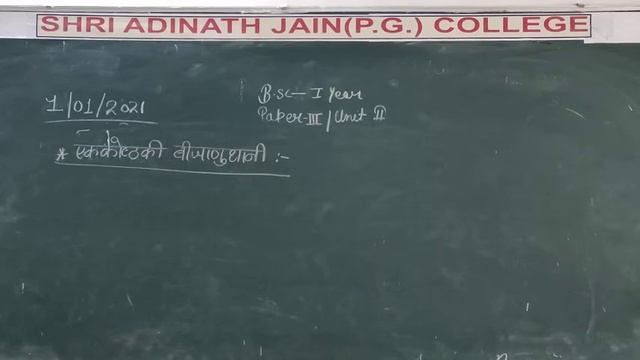 SHRI ADINATH JAIN(P.G.) COLLEGE
1/01/2021
B.sc— I Year
Paper-III / Unit II
* एककोष्ठकी बीजाणुधानी :-